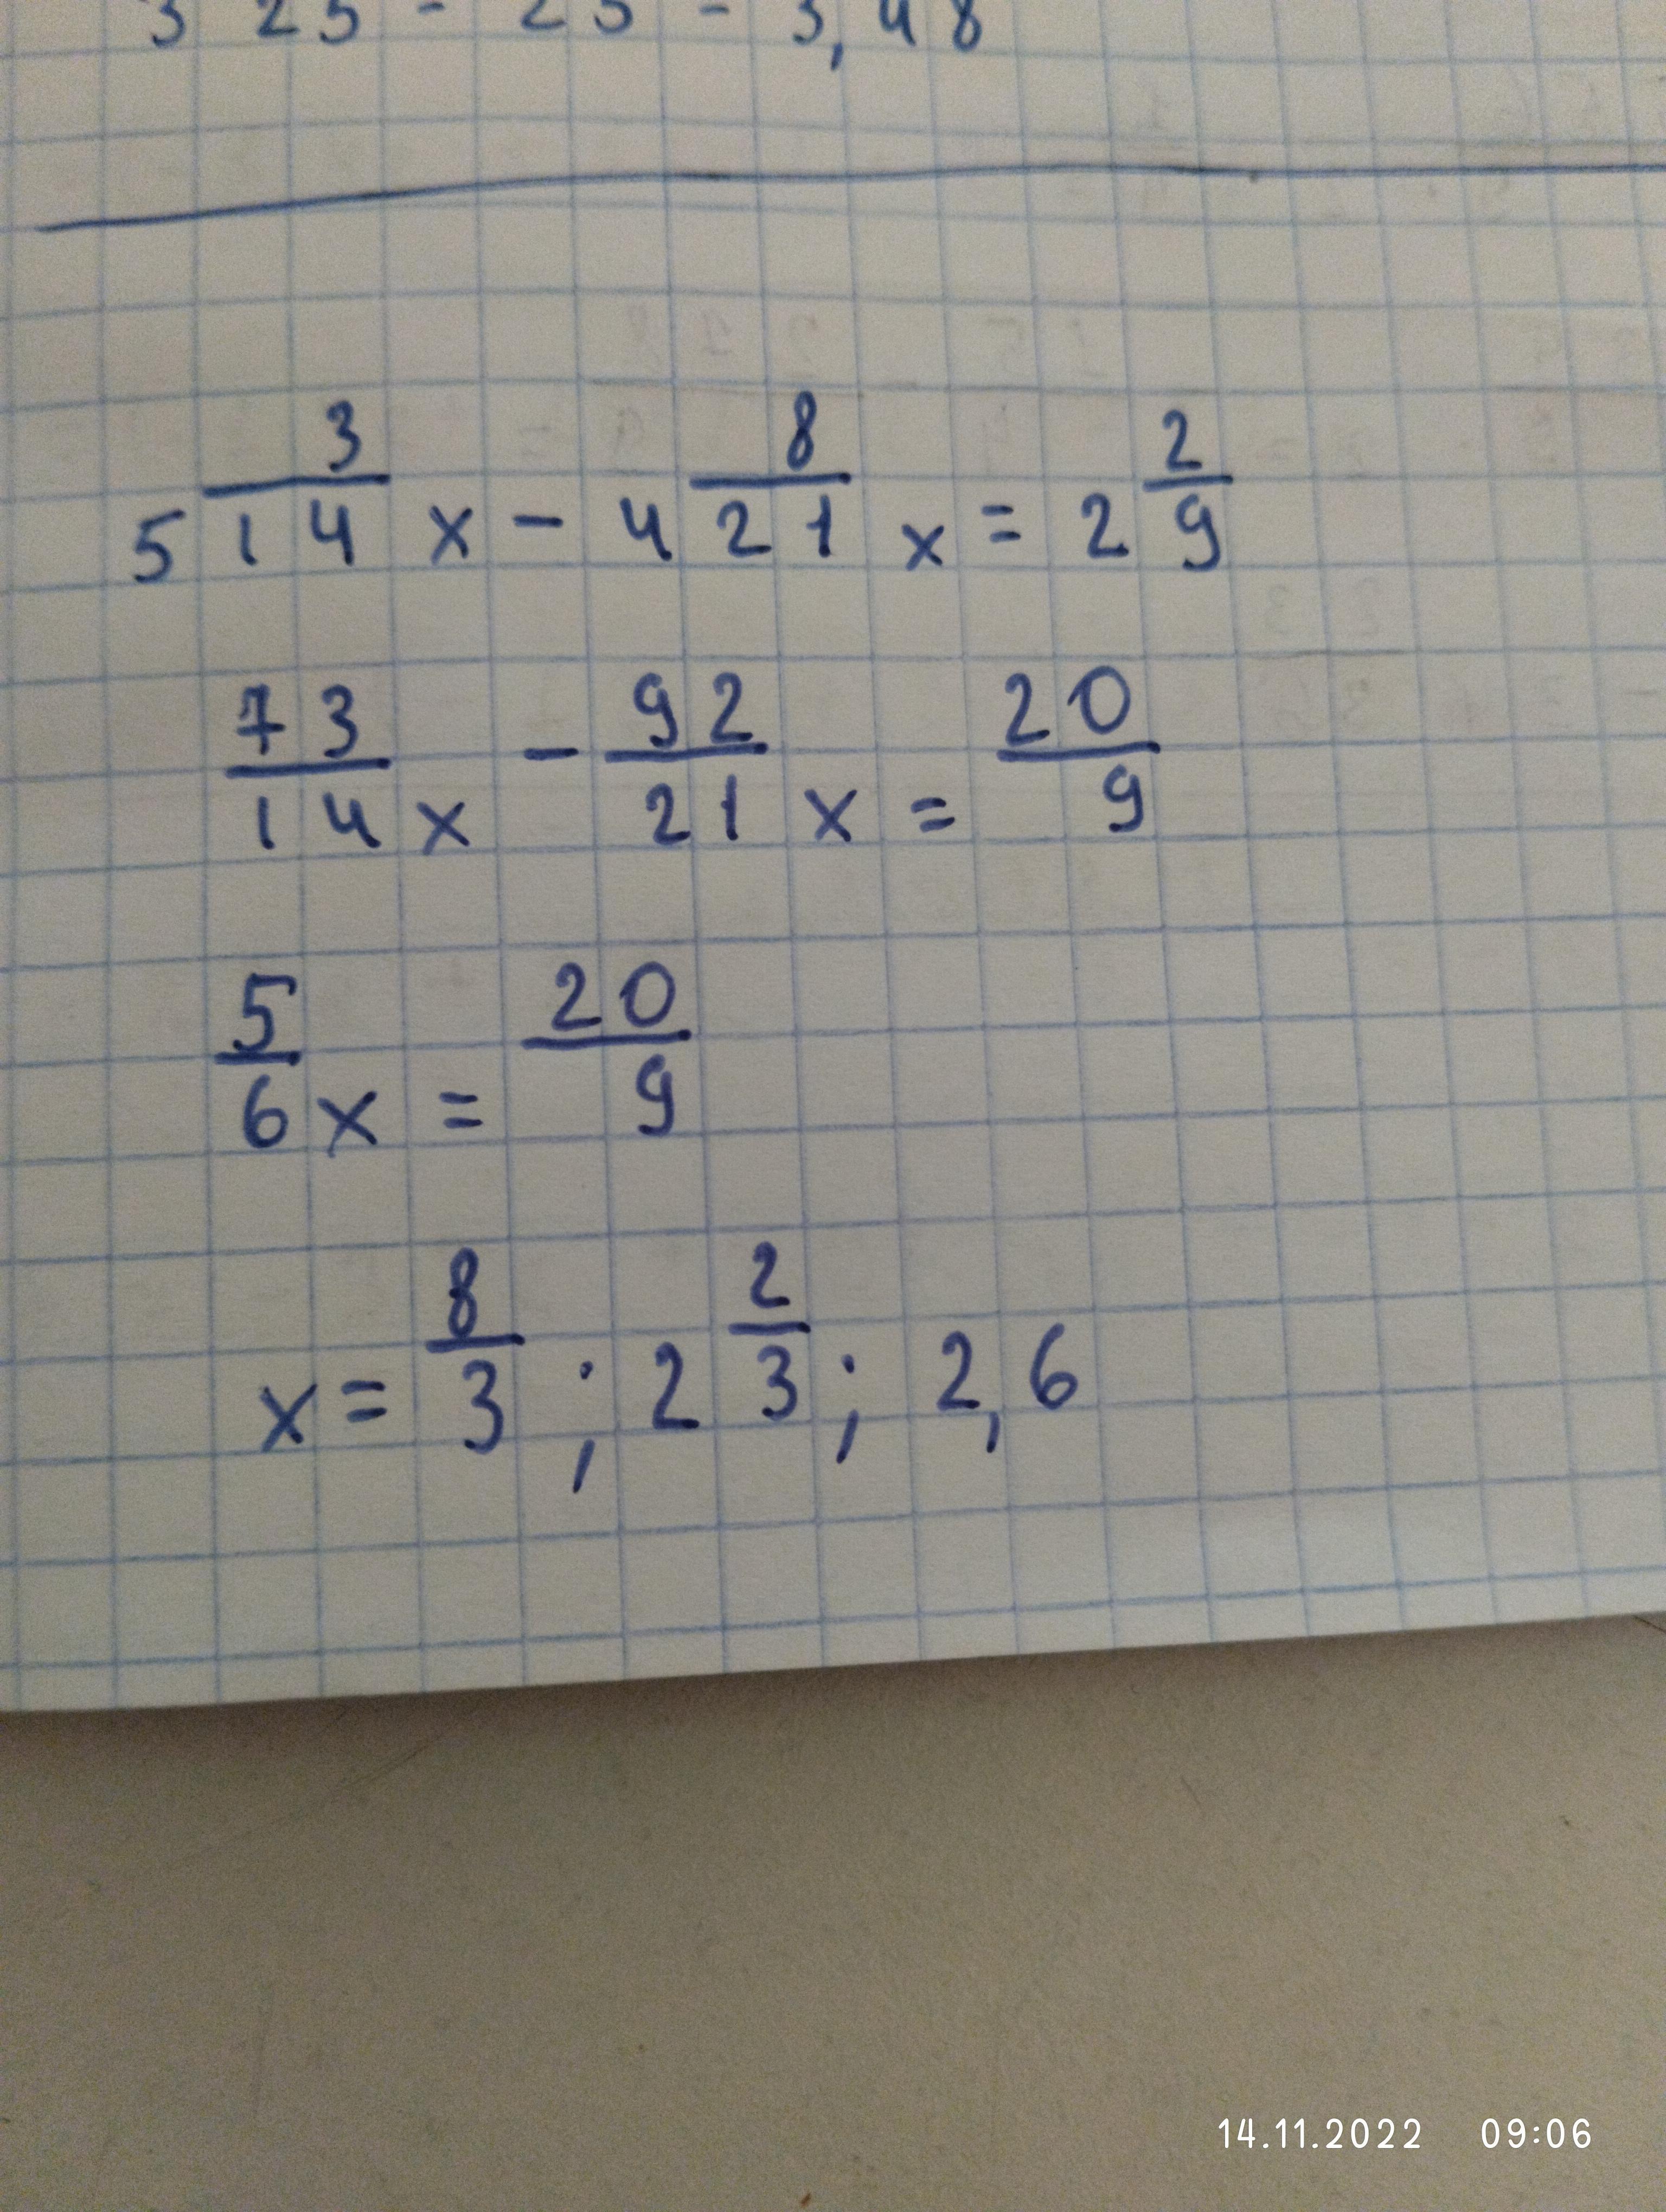 3 25 = 25 = 3,48
5 3/14 x - 4 8/21 x = 2 2/9
73/14 x - 92/21 x = 20/9
5/6 x = 20/9
x = 8/3 ; 2 2/3 ; 2,6
14.11.2022 09:06